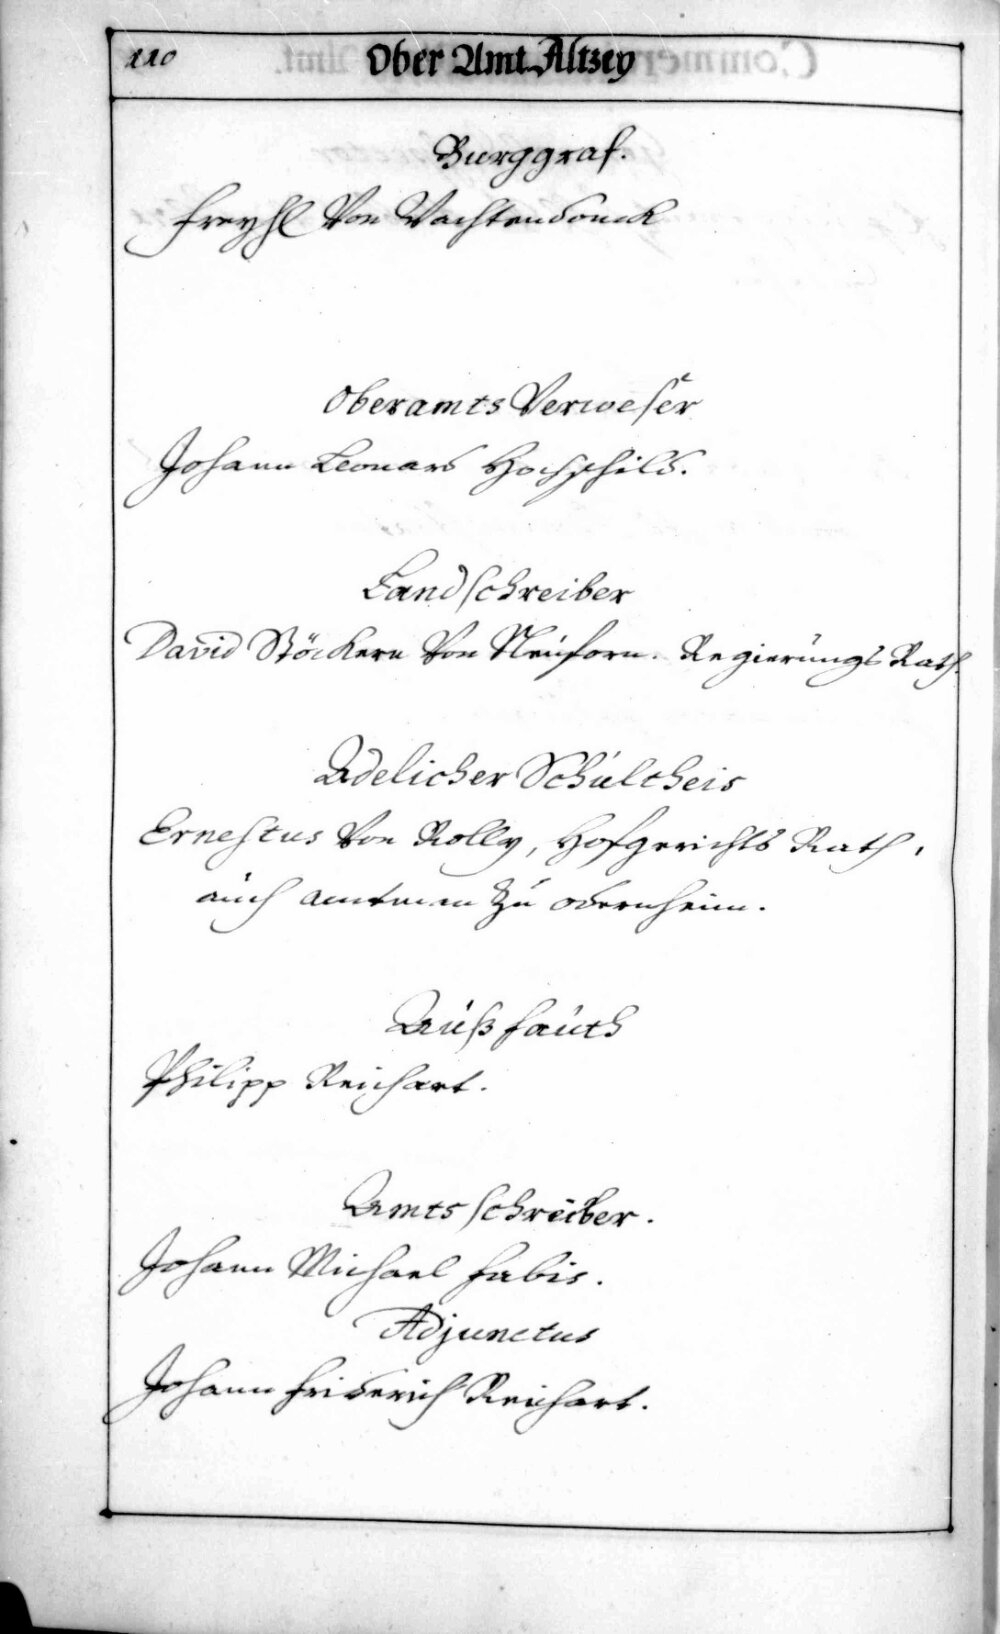 110
Ober Amt Altzey
Burggraf.
Freyhl von Wachtendonck
Oberamts Verweser
Johann Leonard Hochschild.
Landschreiber
David Stöckern von Neüforn. Regierüngs Rath.
Adelicher Schültheis
Ernestus von Rolly, Hofgerichts Rath,
aüch amtman zü odernheim.
Aüßfaüth
Philipp Reichart.
Amtsschreiber.
Johann Michael Fabis.
Adjunctus
Johann Friderich Reichart.